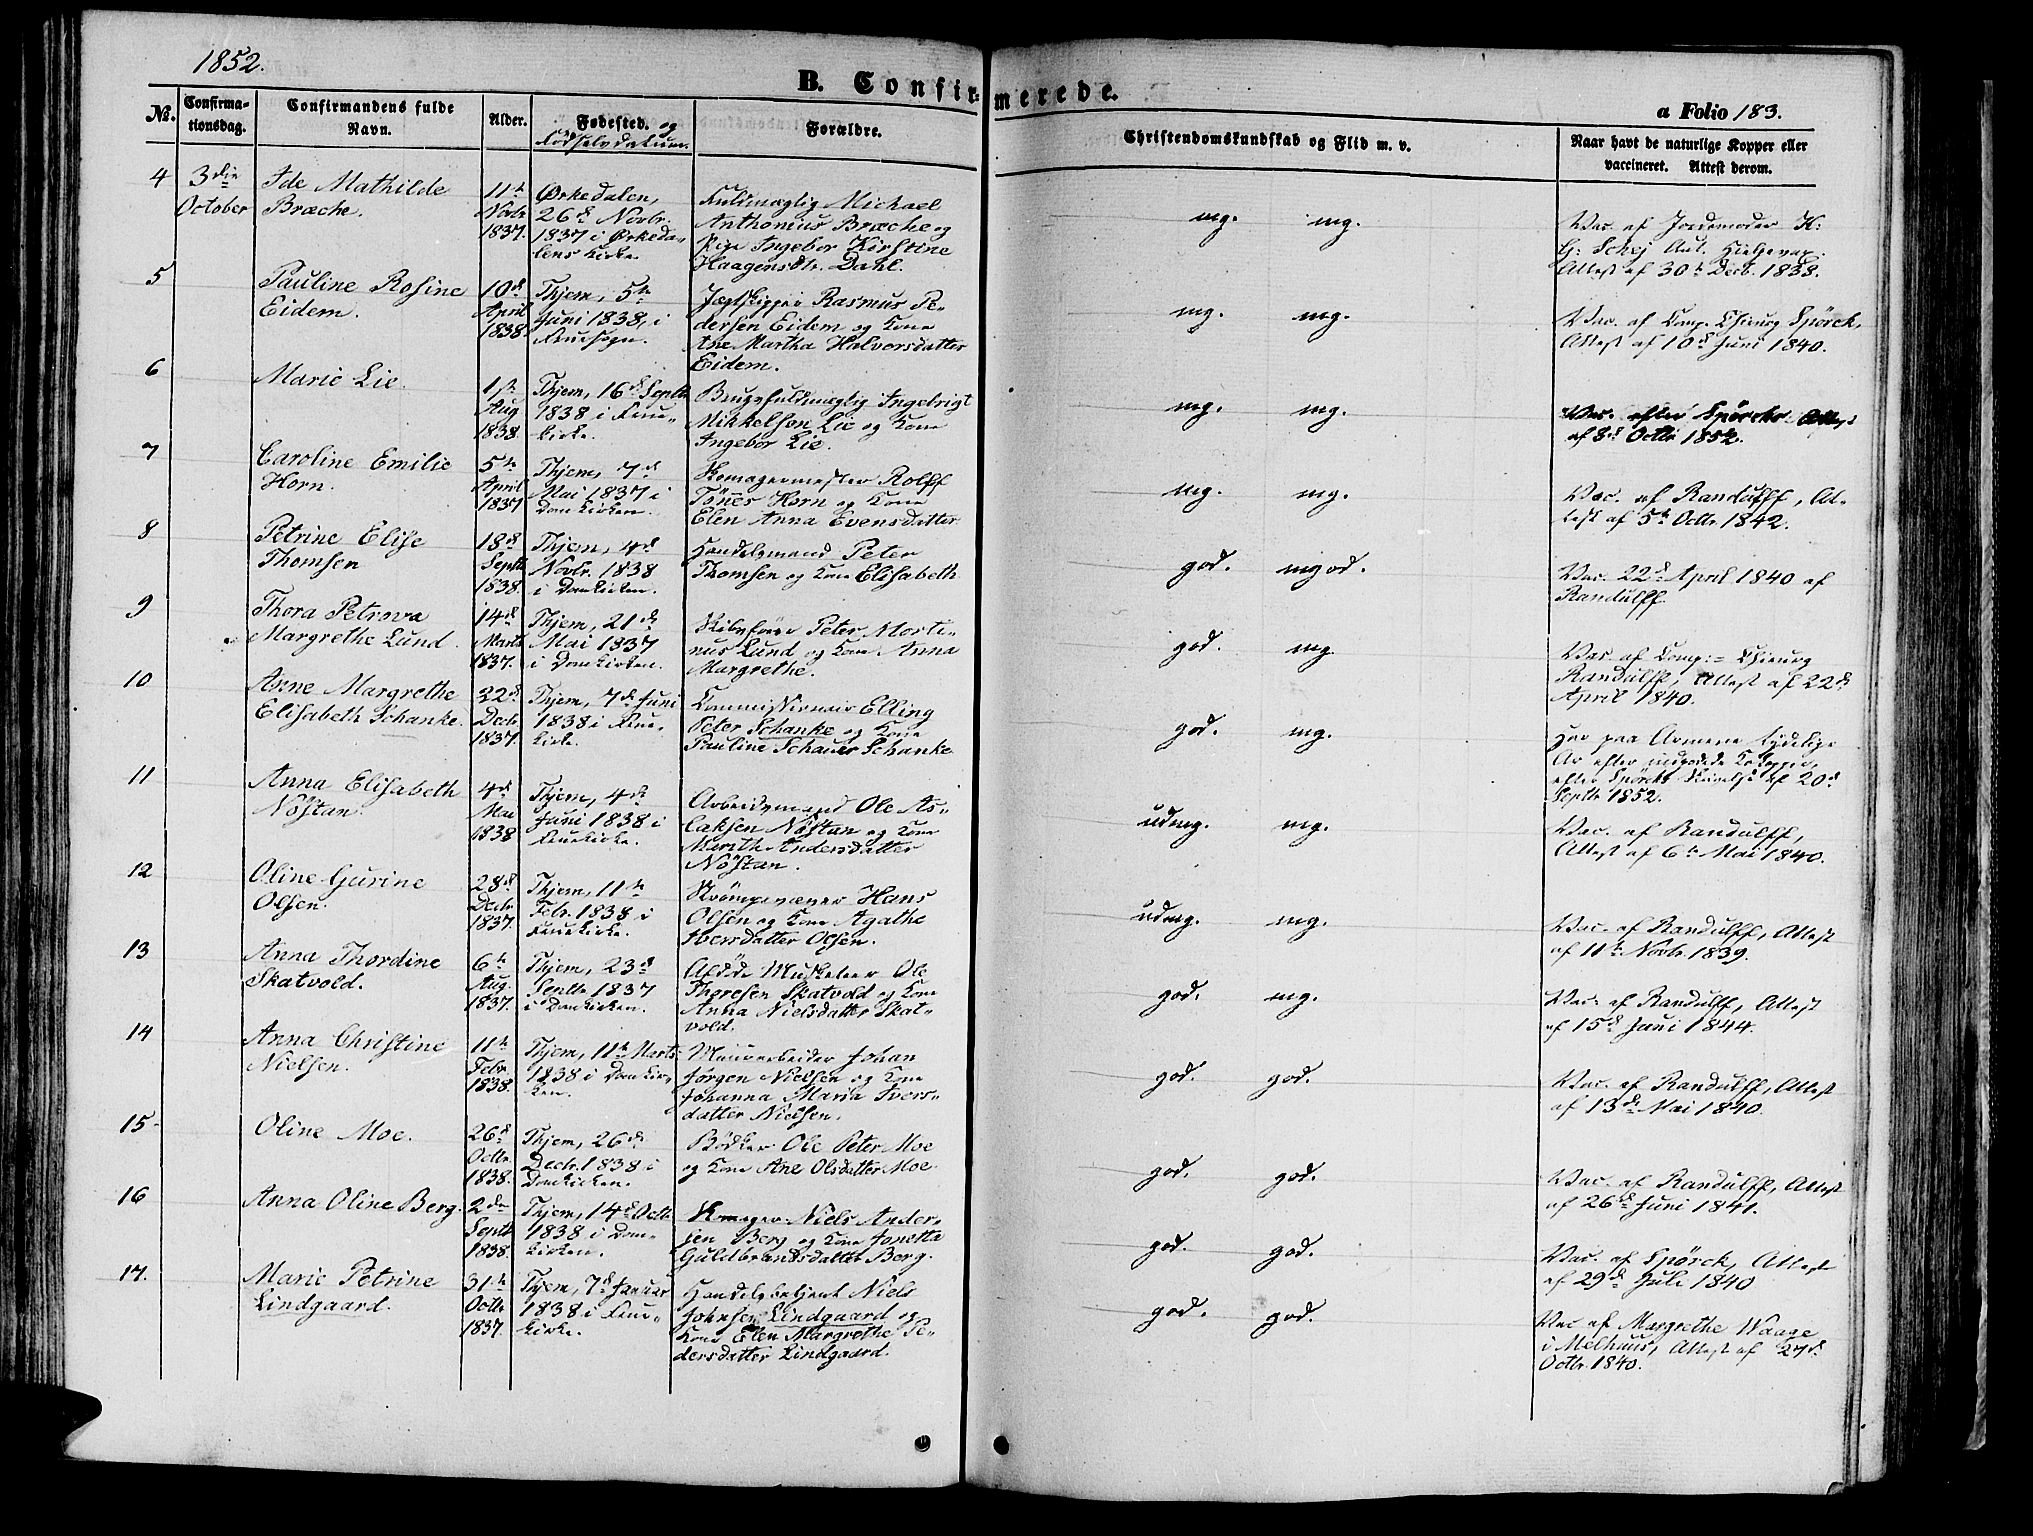 1852.
B. Confirmerede.
a Folio 183.
No.
Confirma-
tionsdag.
Confirmandens fulde
Navn.
Alder.
Fødested. og
Fødselsdatum.
Forældre.
Christendomskundskab og Flid m. v.
Naar havt de naturlige Kopper eller
vaccineret. Attest derom.
4
3die
October
Ide Mathilde
Bræche.
11te
Novbr
1837.
Ørkedalen,
26d Novbr.
1837 i Ørkeda-
lens Kirke.
Fuldmægtig Michael
Anthonius Bræche og
Pige Ingebor Kirstine
Haagensdtr. Dahl.
mg. mg.
Vac. af Jordemoder K:
G: Schej Aut. Hjelpevac.
Attest af 30te Decb. 1838.
5
Pauline Rosine
Eidem.
10d
April
1838
Thjem, 5te
Juni 1838, i
Fruesogn.
Jægtskipper Rasmus Pe-
dersen Eidem og Kone
Ane Martha Halvorsdatter
Eidem.
mg. mg.
Vac. af Comp. Chirurg Spörck,
Attest af 10d Juni 1840.
6
Marie Lie.
1ste
Aug
1838.
Thjem, 16d Septbr
1838 i Frue-
kirke.
Brugsfuldmægtig Ingebrigt
Mikkelsen Lie og Kone
Ingebor Lie.
mg. mg.
Vac. efter Spörcks Attest
af 8d Octbr 1852.
7
Caroline Emilie
Horn.
5te
April
1837
Thjem, 7d
Mai 1837 i
Domkirken.
Skomagermester Rolff
Tönnes Horn og Kone
Elen Anna Evensdatter
mg. mg.
Vac. af Randulff, At-
test af 5te Octbr. 1842.
8
Petrine Elise
Thomsen
18d
Septbr
1838.
Thjem, 4d
Novbr. 1838
i Domkirken.
Handelsmand Peter
Thomsen og Kone Elisabeth
god. mgod.
Vac. 22d April 1840 af
Randulff.
9
Thora Petrova
Margrethe Lund.
14d
Marts
1837.
Thjem, 21d
Mai 1837
i Domkirken.
Skibsfører Peter Morti-
nus Lund og Kone Anna
Margrethe.
god. mg.
Vac. af Comp:= Chirurg
Randulff, Attest af 22d
April 1840.
10
Anne Margrethe
Elisabeth Schanke.
22d
Decbr
1837.
Thjem, 7d Juni
1838 i Frue-
kirke.
Commissionair Elling
Peter Schanke og Kone
Pauline Schauer Schanke
god. mg.
Har paa Armene tydelige
Ar efter Kokopper,
efter Spörcks af 20d
Septbr 1852.
11
Anna Elisabeth
Nöstan.
4d
Mai
1838
Thjem, 4de
Juni 1838 i
Fruekirke.
Arbeidsmand Ole As-
laksen Nöstan og Kone
Marith Andersdatter
Nöstan.
udmg. mg.
Vac. af Randulff,
Attest af 6te Mai 1840.
12
Oline Gurine
Olsen.
28d
Decbr
1837.
Thjem, 11te
Febr. 1838 i
Fruekirke.
Strömpevæver Hans
Olsen og Kone Agathe
Iversdatter Olsen.
udmg. mg.
Vac. af Randulff, Attest
af 11te Novbr. 1839.
13
Anna Thordine
Skatvold.
6te
Aug.
1837.
Thjem, 23d
Septbr 1837
i Domkirken.
Afdöde Musketeer Ole
Thoresen Skatvold og Kone
Anna Nielsdatter Skat-
vold.
god. mg.
Vac. af Randulff, Attest
af 15d Juni 1844.
14
Anna Christine
Nielsen.
11te
Febr.
1838.
Thjem, 11te Marts
1838 i Domkir-
ken.
Muurarbeider Johan
Jørgen Nielsen og Kone
Johanna Maria Ivers-
datter Nielsen.
god. god.
Vac. af Randulff, Attest
af 13de Mai 1840.
15
Oline Moe.
26d
Octbr.
1838.
Thjem, 26de
Decbr. 1838 i
Domkirken.
Bödker Ole Peter Moe
og Kone Ane Olsdatter Moe
god. god.
Vac. af Randulff, Attest
af 26d Juni 1841.
16
Anna Oline Berg.
2den
Septbr
1838.
Thjem, 14d Octbr
1838 i Dom-
kirken.
Niels Ander-
sen Berg og Kone Jonetta
Guldbrandsdatter Berg.
god. god.
Vac. af Spörck, Attest
af 29d Juli 1840
17.
Marie Petrine
Lindgaard.
31te
Octbr
1837.
Thjem, 7d Januar
1838 i Frue-
kirke.
Handelsbetjent Niels
Johnsen Lindgaard og
Kone Elen Margrethe Pe-
dersdatter Lindgaard.
god. god.
Vac af Margrethe Waage
i Melhuus, Attest af 27d
Octbr 1840.